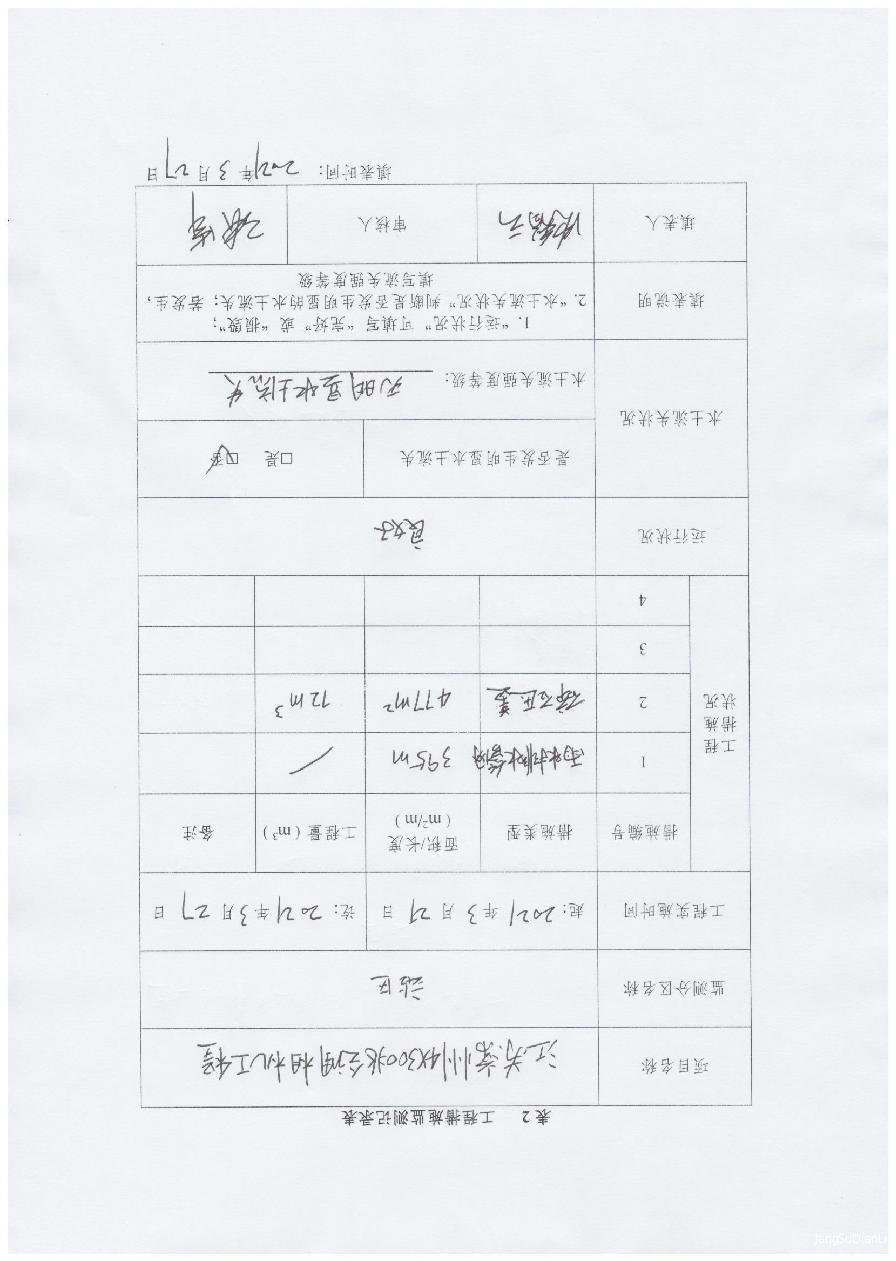 表 2 工程措施监测记录表
项目名称 江苏常州4X300兆乏调相机工程
监测分区名称 站区
工程实施时间 起：2021年 3 月 21 日 讫：2021年3月27日
工程措施状况
措施编号 措施类型 面积/长度（m²/m） 工程量（m³） 备注
1 雨水排水管网 395m /
2 碎石压盖 477m² 72m³
3
4
运行状况 良好
水土流失状况
是否发生明显水土流失 □是 ☑否
水土流失强度等级： 无明显水土流失
填表说明
1. “运行状况”可填写“完好”或“损毁”；
2. “水土流失状况”判断是否发生明显的水土流失；若发生，
填写流失强度等级
填表人 审核人
填表时间： 2021年 3 月 27日
JangSuDianLi